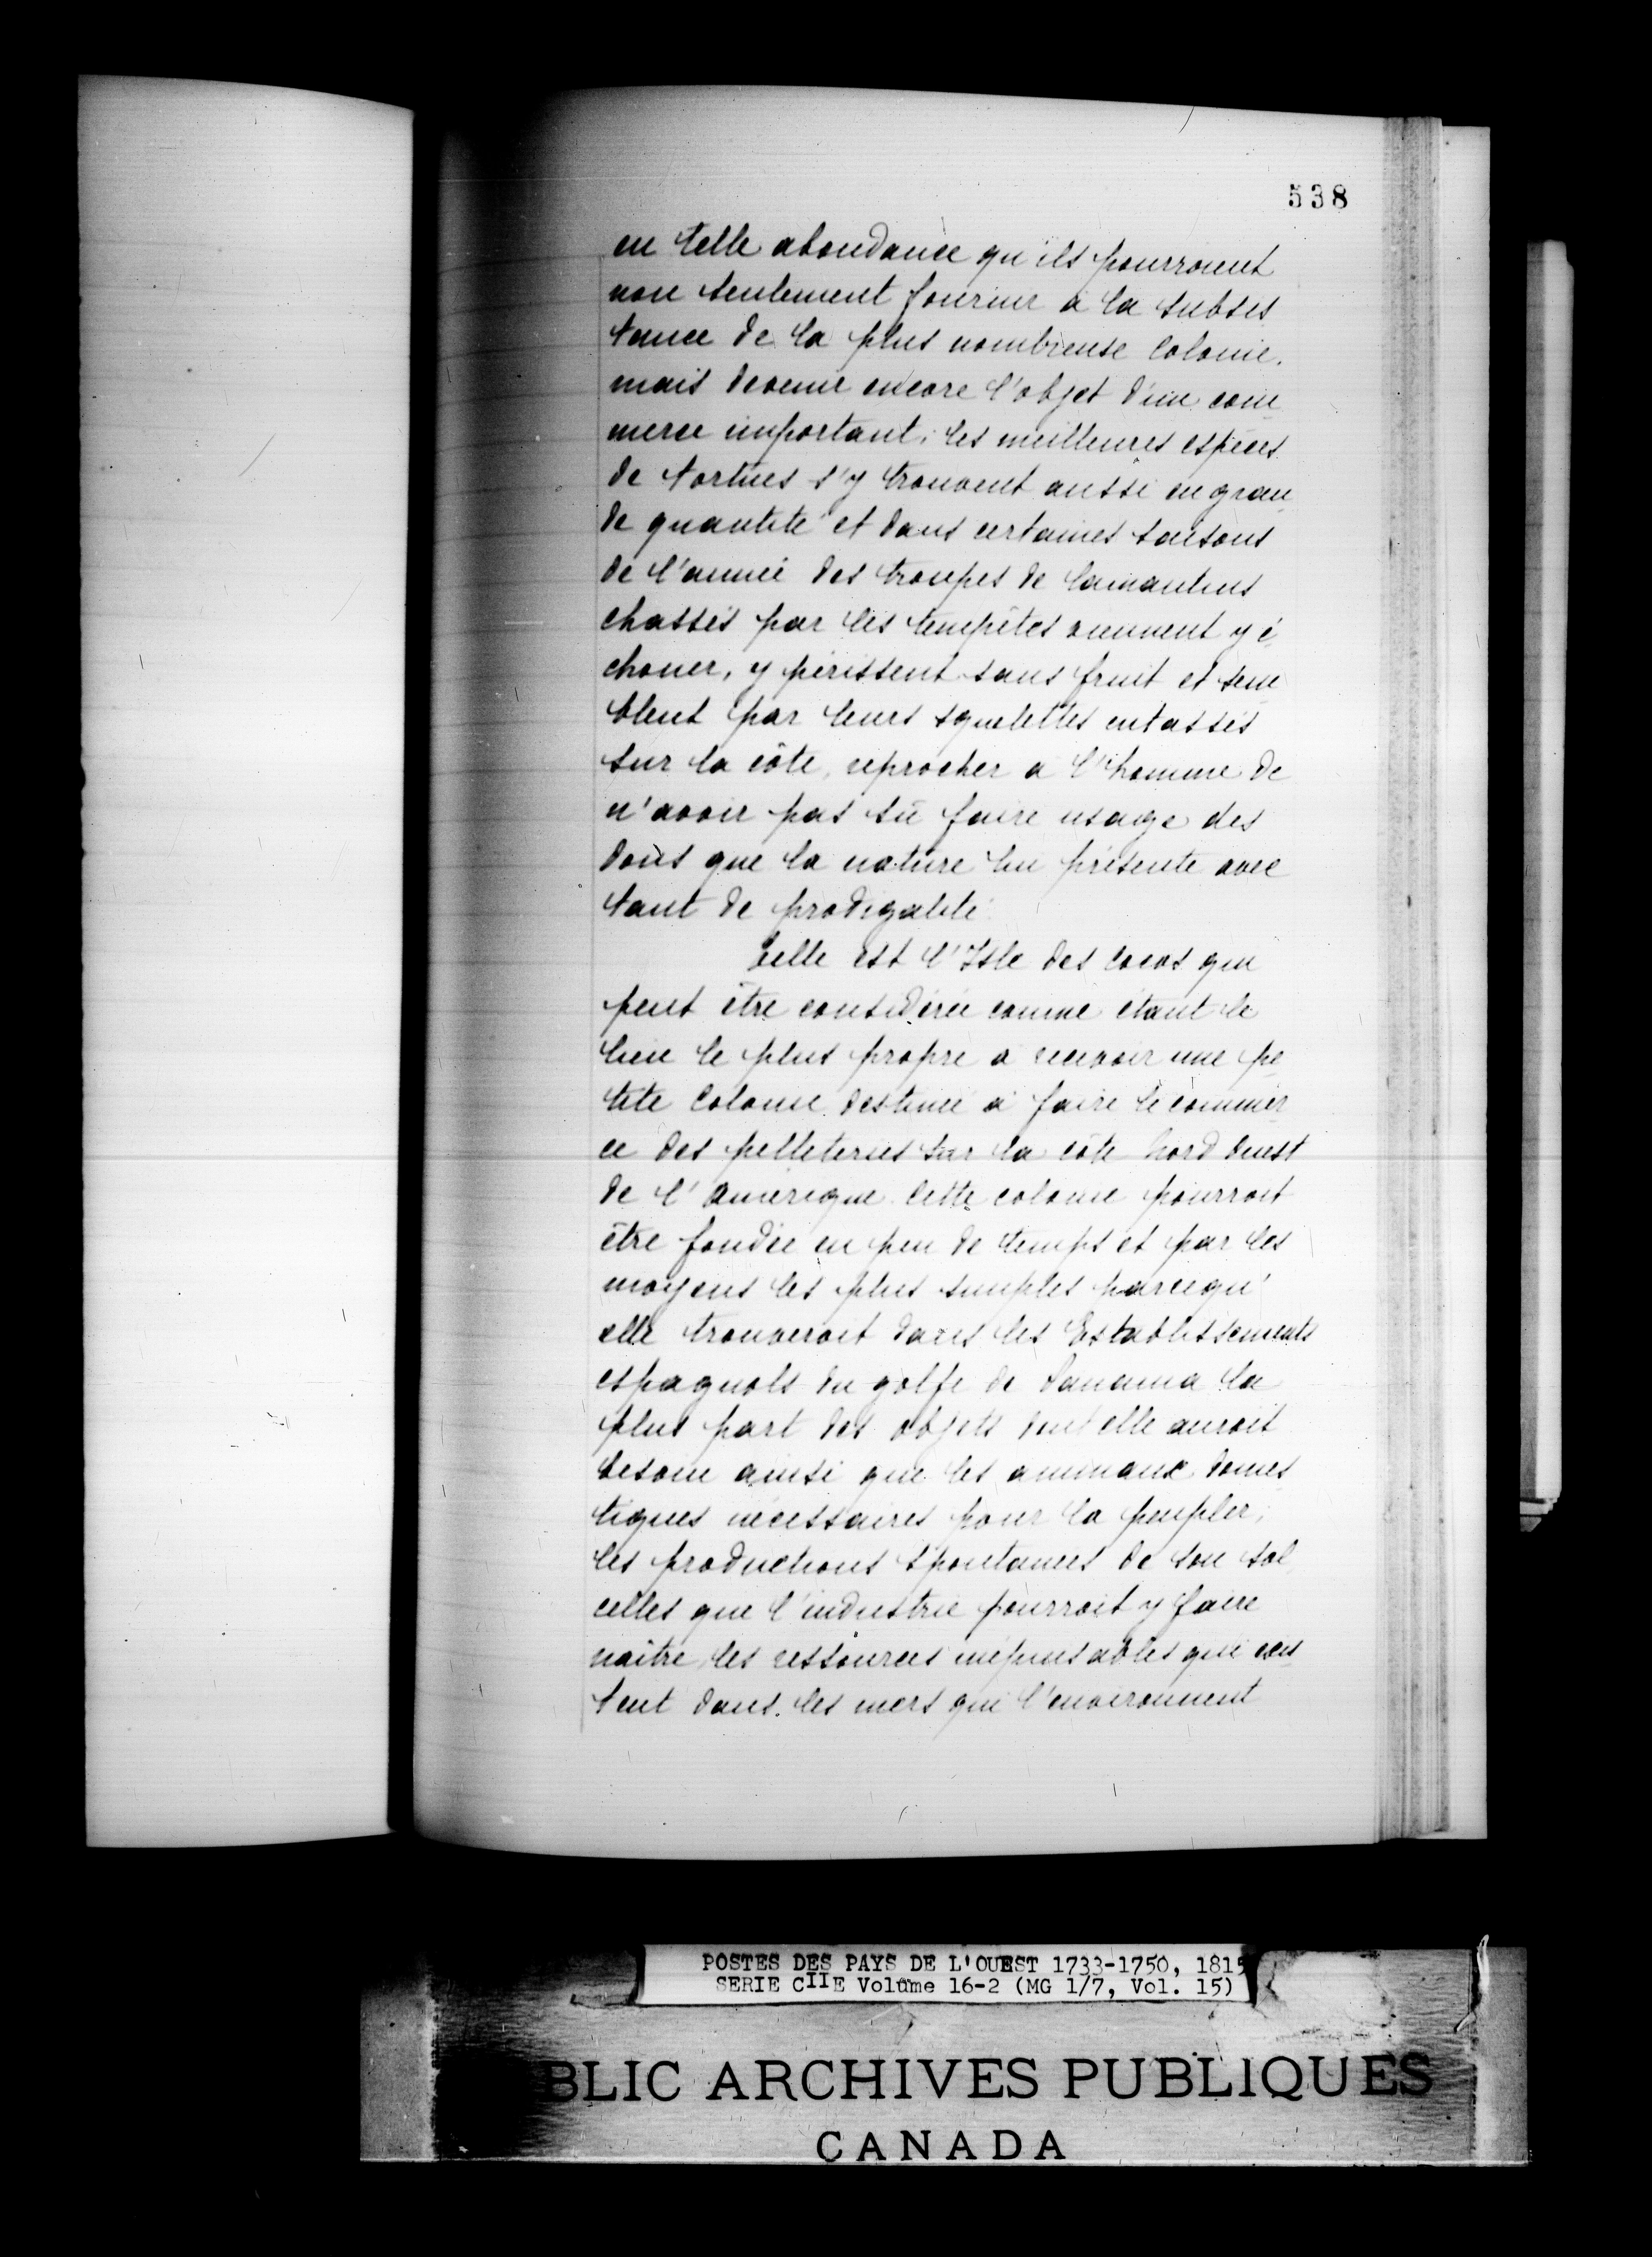 538
en telle abondance qu'ils pourroient
non seulement fournir à la subsis
tance de la plus nombreuse colonie.
mais devenir encore l'objet d'un com
merce important, les meilleures espèces
de tortues s'y trouvent aussi en gran
de quantité et dans certaines saisons
de l'année des troupes de lamantins
chassés par les tempêtes viennent y é
chouer, y périssent sans fruit et sem
blent par leurs squelettes entassés
sur la côte, reprocher à l'homme de
n'avoir pas sû faire usage des
dons que la nature lui présente avec
tant de prodigalité
Telle est l'Isle des Cocos qui
peut être considérée comme étant le
lieu le plus propre à recevoir une pe
tite Colonie destinée à faire le commer
ce des pelleteries sur la côte Nord Ouest
de l'Amérique. Cette colonie pourroit
être fondée en peu de temps et par les
moyens les plus simples parcequ'
elle trouveroit dans les Etablissements
espagnols du golfe de Panama la
plus part des objets dont elle auroit
besoin ainsi que les animaux domes
tiques nécessaires pour la peupler,
les productions spontanées de son sol,
celles que l'industrie pourroit y faire
naître, les ressources inépuisables qui exis
tent dans les mers qui l'environnent
POSTES DES PAYS DE L'OUEST 1733-1750, 1815
SERIE CIIE Volume 16-2 (MG 1/7, Vol. 15)
BLIC ARCHIVES PUBLIQUES
CANADA